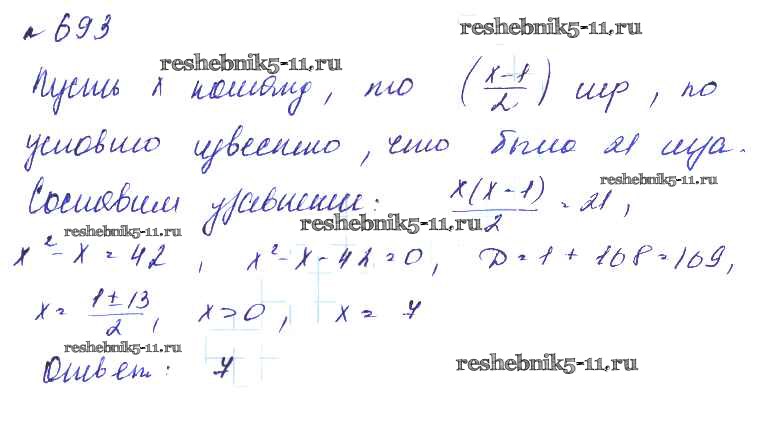 № 693
reshebnik5-11.ru
reshebnik5-11.ru
Пусть x команд, то (x-1/2) игр, по
условию известно, что было 21 игра.
reshebnik5-11.ru
Составим уравнение: x(x-1)/2 = 21,
reshebnik5-11.ru
reshebnik5-11.ru
x² - x = 42, x² - x - 42 = 0, D = 1 + 168 = 169,
x = 1±13/2, x>0, x = 7
reshebnik5-11.ru
Ответ: 7
reshebnik5-11.ru